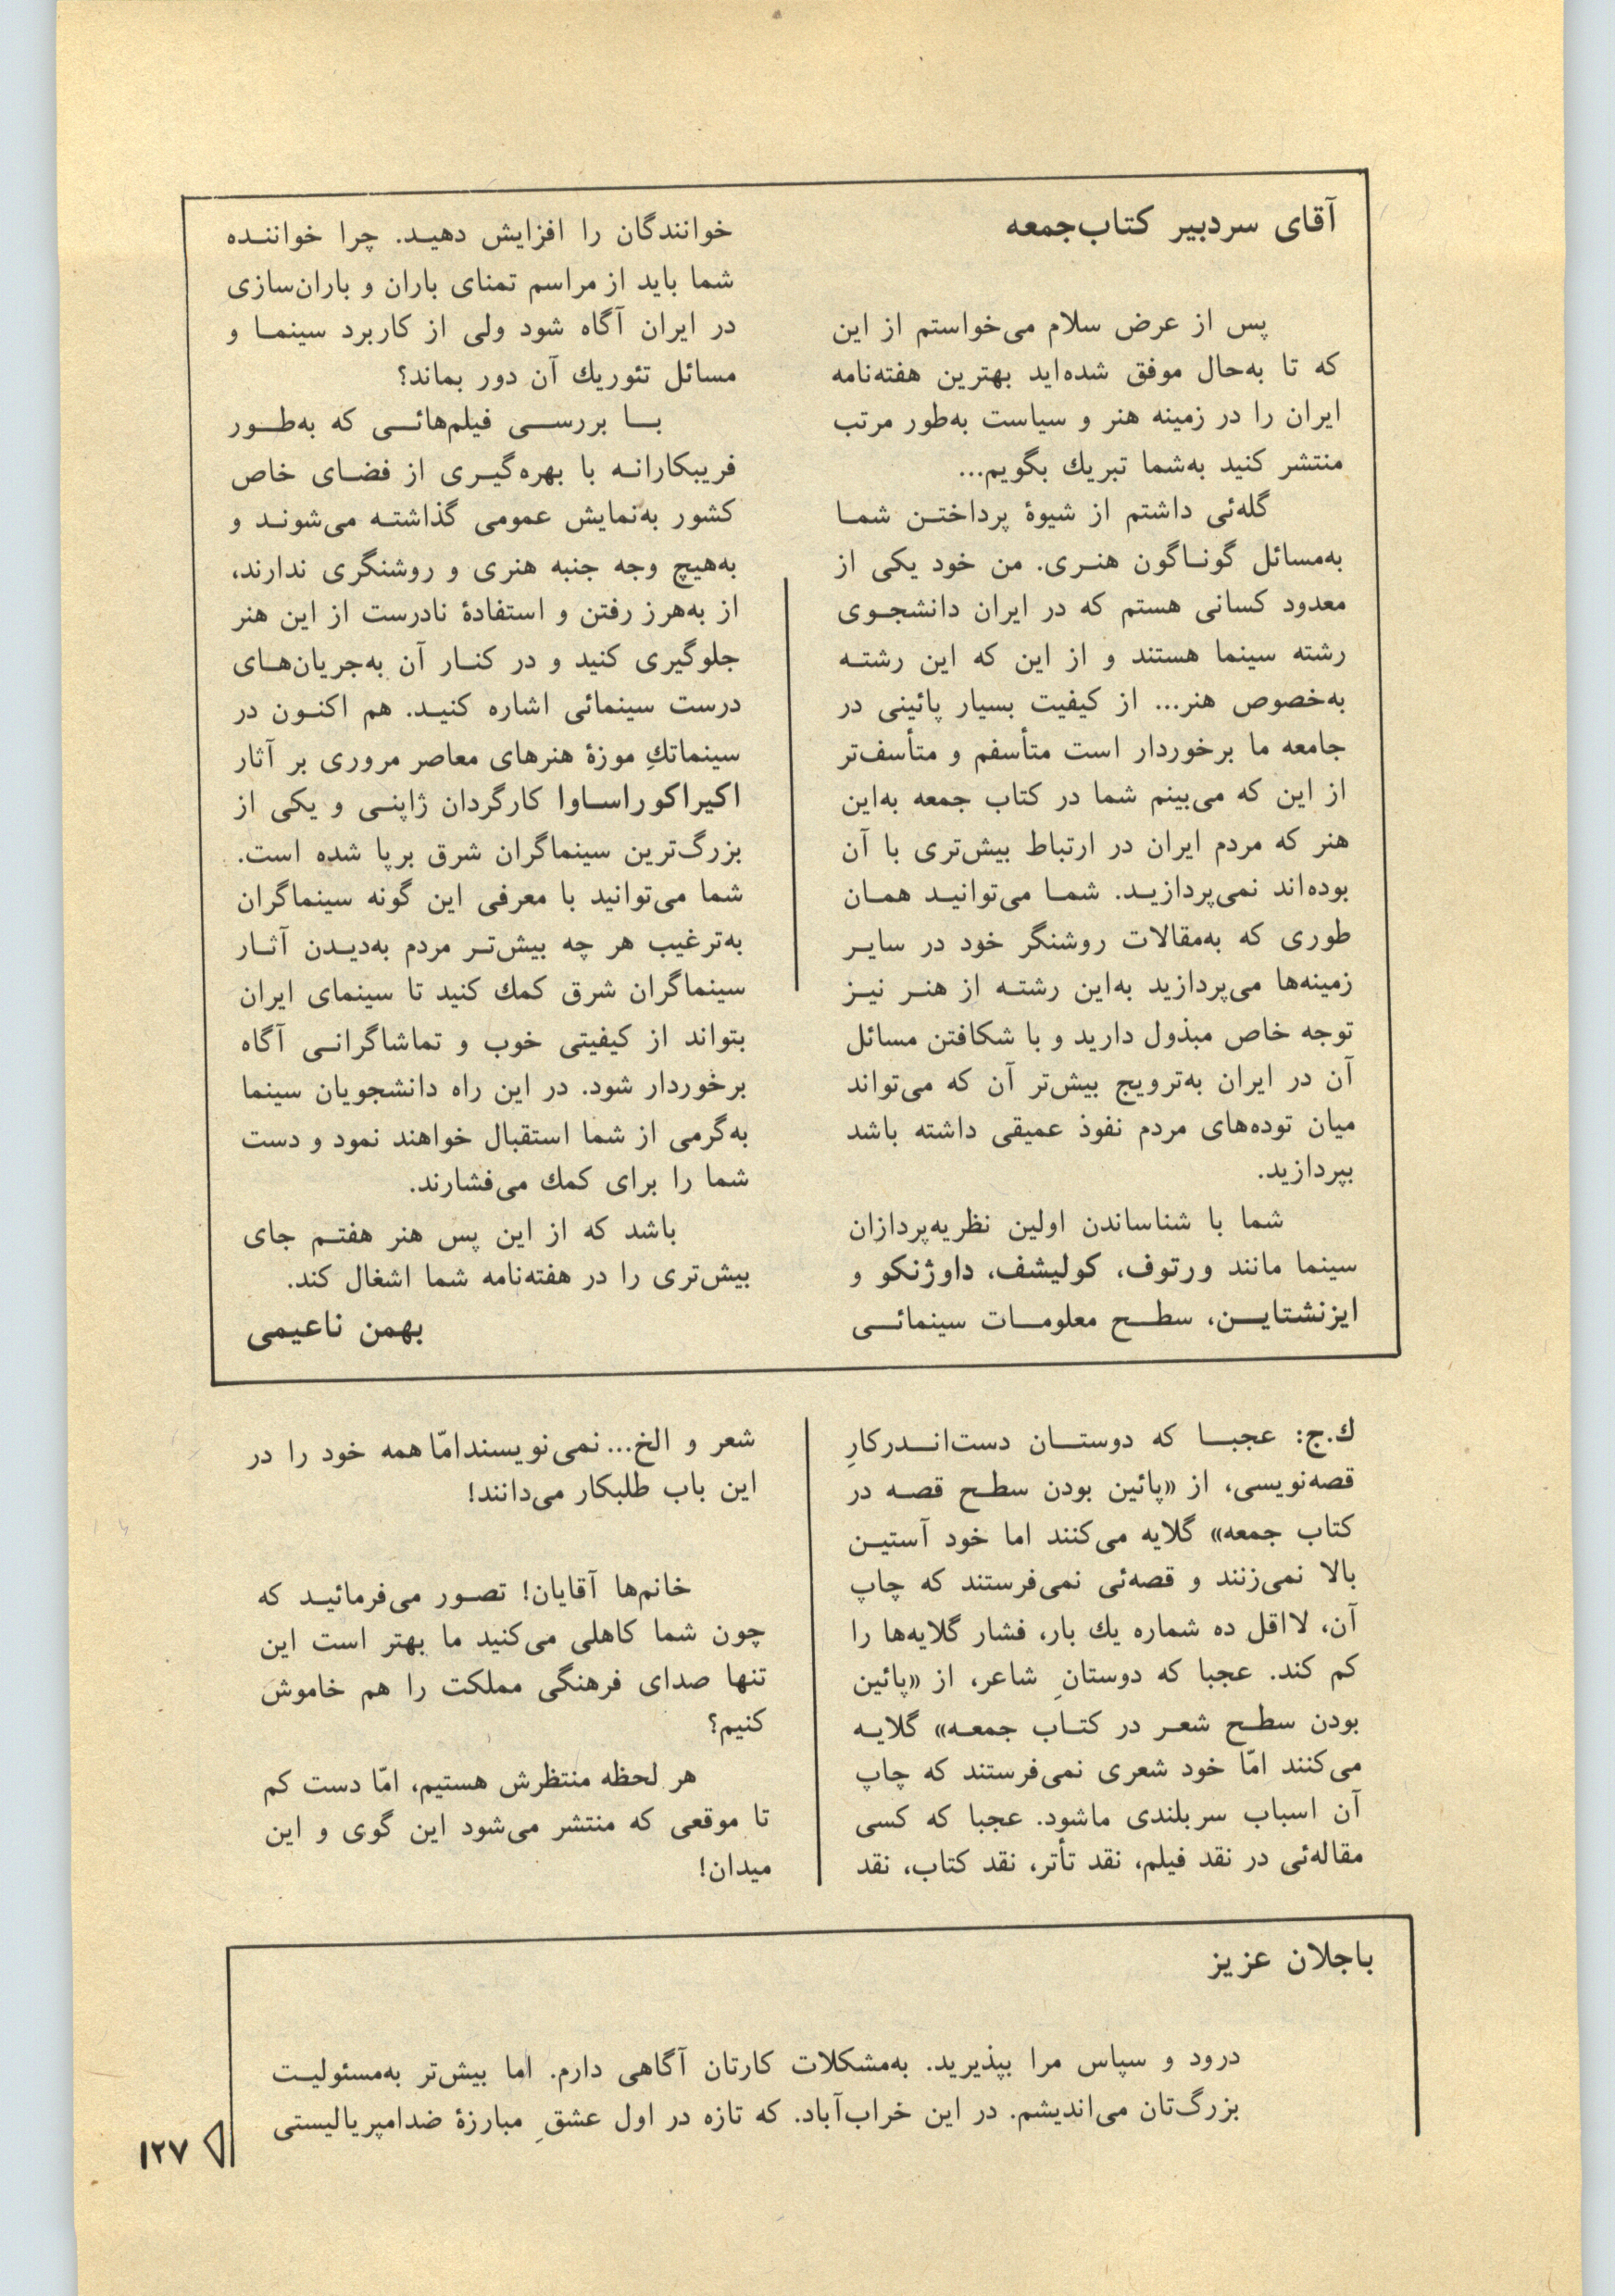 آقای سردبیر کتاب‌جمعه
پس از عرض سلام می‌خواستم از این
که تا به‌حال موفق شده‌اید بهترین هفته‌نامه
ایران را در زمینه هنر و سیاست به‌طور مرتب
منتشر کنید به‌شما تبریك بگویم...
گله‌ئی داشتم از شیوهٔ پرداختـن شمـا
به‌مسائل گونـاگون هنـری. من خود یکی از
معدود کسانی هستم که در ایران دانشجـوی
رشته سینما هستند و از این که این رشتـه
به‌خصوص هنر... از کیفیت بسیار پائینی در
جامعه ما برخوردار است متأسفم و متأسف‌تر
از این که می‌بینم شما در کتاب جمعه به‌این
هنر که مردم ایران در ارتباط بیش‌تری با آن
بوده‌اند نمی‌پردازیـد. شمـا می‌توانیـد همـان
طوری که به‌مقالات روشنگر خود در سایـر
زمینه‌ها می‌پردازید به‌این رشتـه از هنـر نیـز
توجه خاص مبذول دارید و با شکافتن مسائل
آن در ایران به‌ترویج بیش‌تر آن که می‌تواند
میان توده‌های مردم نفوذ عمیقی داشته باشد
بپردازید.
شما با شناساندن اولین نظریه‌پردازان
سینما مانند ورتوف، کولیشف، داوژنکو و
ایزنشتایــن، سطــح معلومــات سینمائــی
خوانندگان را افزایش دهیـد. چرا خواننـده
شما باید از مراسم تمنای باران و باران‌سازی
در ایران آگاه شود ولی از کاربرد سینمـا و
مسائل تئوریك آن دور بماند؟
بــا بررســی فیلم‌هائــی که به‌طــور
فریبکارانـه با بهره‌گیـری از فضـای خاص
کشور به‌نمایش عمومی گذاشتـه می‌شونـد و
به‌هیچ وجه جنبه هنری و روشنگری ندارند،
از به‌هرز رفتن و استفادهٔ نادرست از این هنر
جلوگیری کنید و در کنـار آن به‌جریان‌هـای
درست سینمائی اشاره کنیـد. هم اکنـون در
سینماتكِ موزهٔ هنرهای معاصر مروری بر آثار
اکیراکوراسـاوا کارگردان ژاپنـی و یکی از
بزرگ‌ترین سینماگران شرق برپا شده است.
شما می‌توانید با معرفی این گونه سینماگران
به‌ترغیب هر چه بیش‌تـر مردم به‌دیـدن آثـار
سینماگران شرق کمك کنید تا سینمای ایران
بتواند از کیفیتی خوب و تماشاگرانـی آگاه
برخوردار شود. در این راه دانشجویان سینما
به‌گرمی از شما استقبال خواهند نمود و دست
شما را برای کمك می‌فشارند.
باشد که از این پس هنر هفتـم جای
بیش‌تری را در هفته‌نامه شما اشغال کند.
بهمن ناعیمی
ك.ج: عجبــا که دوستــان دست‌انــدرکارِ
قصه‌نویسی، از «پائین بودن سطـح قصـه در
کتاب جمعه» گلایه می‌کنند اما خود آستیـن
بالا نمی‌زنند و قصه‌ئی نمی‌فرستند که چاپ
آن، لااقل ده شماره یك بار، فشار گلایه‌ها را
کم کند. عجبا که دوستانِ شاعر، از «پائین
بودن سطـح شعـر در کتـاب جمعـه» گلایـه
می‌کنند امّا خود شعری نمی‌فرستند که چاپ
آن اسباب سربلندی ماشود. عجبا که کسی
مقاله‌ئی در نقد فیلم، نقد تأتر، نقد کتاب، نقد
شعر و الخ... نمی‌نویسندامّا همه خود را در
این باب طلبکار می‌دانند!
خانم‌ها آقایان! تصـور می‌فرمائیـد که
چون شما کاهلی می‌کنید ما بهتر است این
تنها صدای فرهنگی مملکت را هم خاموش
کنیم؟
هر لحظه منتظرش هستیم، امّا دست کم
تا موقعی که منتشر می‌شود این گوی و این
میدان!
باجلان عزیز
درود و سپاس مرا بپذیرید. به‌مشکلات کارتان آگاهی دارم. اما بیش‌تر به‌مسئولیـت
بزرگ‌تان می‌اندیشم. در این خراب‌آباد. که تازه در اول عشقِ مبارزهٔ ضدامپریالیستی
۱۲۷